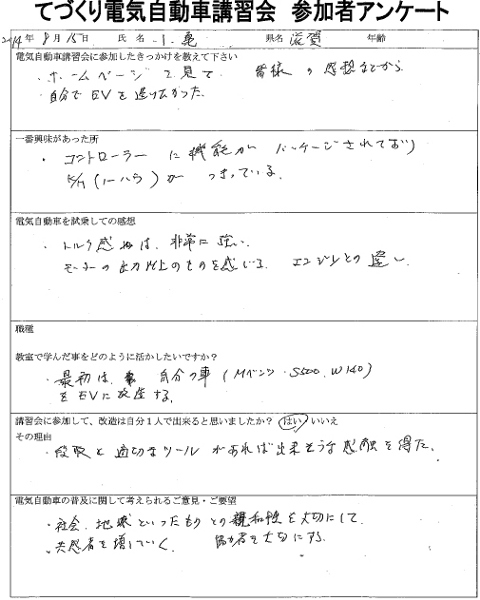 てづくり電気自動車講習会 参加者アンケート
2014年 8月15日 氏名 県名 滋賀 年齢
電気自動車講習会に参加したきっかけを教えて下さい
・ホームページで見て 皆様の感想などから
・自分でEVを造りたかった。
一番興味があった所
・コントローラーに機能がパッケージされており
がつまっている。
電気自動車を試乗しての感想
・トルク感は、非常に強い。
モーターの出力以上のものを感じる。エンジンとの違い
職種
教室で学んだ事をどのように活かしたいですか？
・最初は、自分の車(Mベンツ・S500.W140)
をEVに改造する。
講習会に参加して、改造は自分1人で出来ると思いましたか？ はい いいえ
その理由
・段取と適切なツールがあれば出来そうな感触を得た。
電気自動車の普及に関して考えられるご意見・ご要望
・社会、地球といったものとの親和性を大切にして、
・共感者を増していく。 協力者を大切にする。